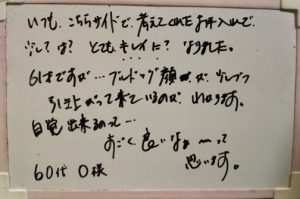 いつも、こちらサイドで、考えてくれたお手入れで、
少しでは？ とても キレイに？ なりました。
61才ですが…ブルドッグ顔が 少しづつ
引き上がって来ているのが わかります。
自覚出来るのって…
すごく 良いなぁ〜って
思います。
60代 O様